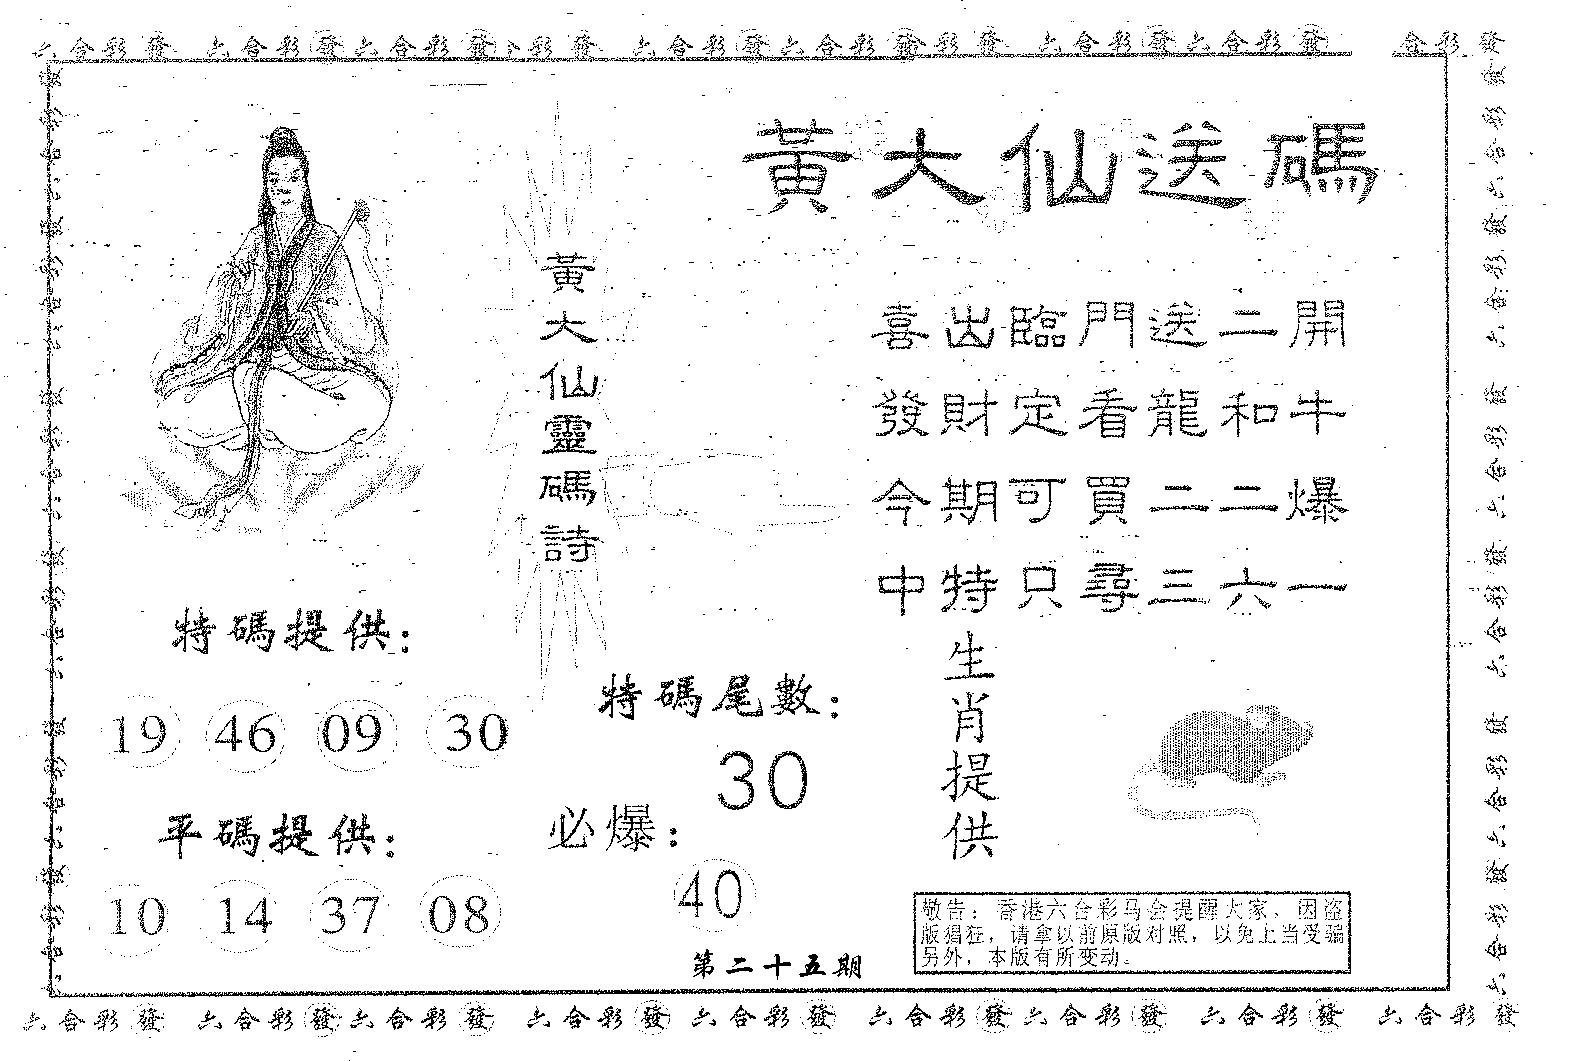 六合彩發 六合彩發六合彩發 彩發 六合彩發六合彩發彩發 六合彩發六合彩發 合彩發
黃大仙送碼
黃大仙靈碼詩
喜出臨門送二開
發財定看龍和牛
今期可買二二爆
中特只尋三六一
特碼提供：
19 46 09 30
平碼提供：
10 14 37 08
特碼尾數：
30
必爆：
40
生肖提供
敬告：香港六合彩马会提醒大家，因盗
版猖狂，请拿以前原版对照，以免上当受骗
另外，本版有所变动。
第二十五期
六合彩發 六合彩發六合彩發 六合彩發 六合彩發 六合彩發六合彩發 六合彩發 六合彩發